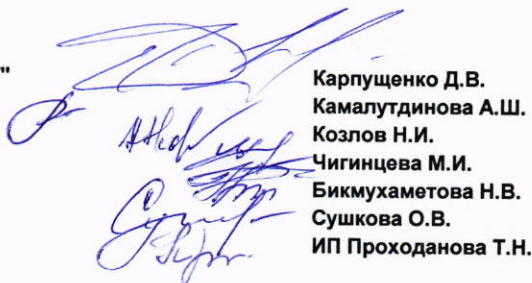 "
Карпущенко Д.В.
Камалутдинова А.Ш.
Козлов Н.И.
Чигинцева М.И.
Бикмухаметова Н.В.
Сушкова О.В.
ИП Проходанова Т.Н.